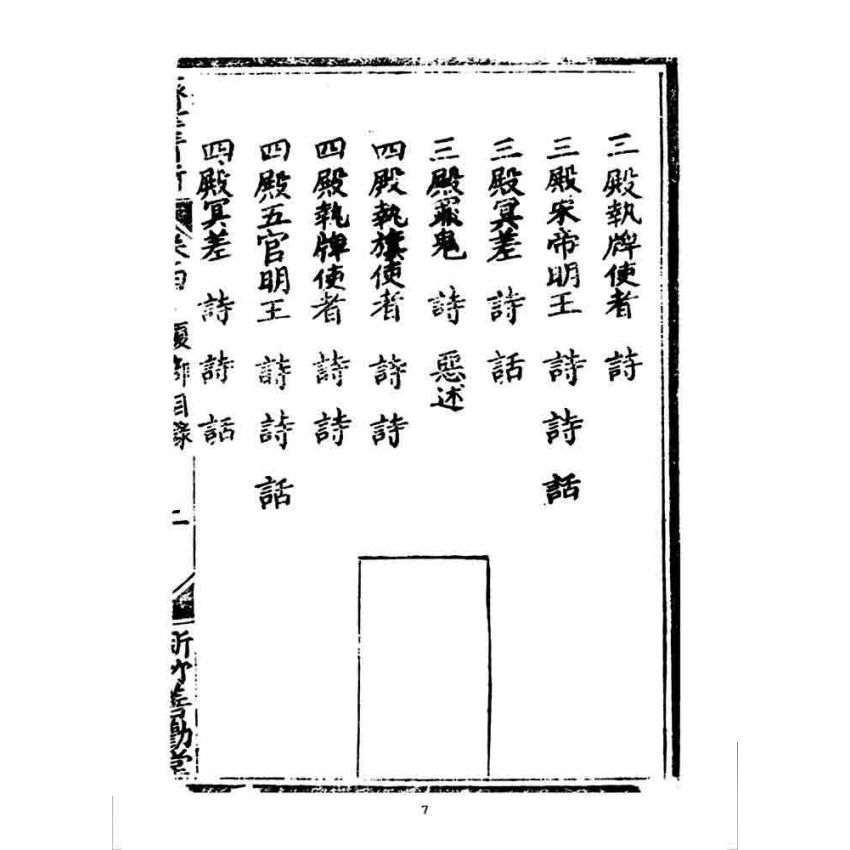 三殿執牌使者 詩
三殿宋帝明王 詩 詩 話
三殿冥差 詩 話
三殿眾鬼 詩 惡述
四殿執旗使者 詩 詩
四殿執牌使者 詩 詩
四殿五官明王 詩 詩 話
四殿冥差 詩 詩 話
目錄 二
善勸堂
7